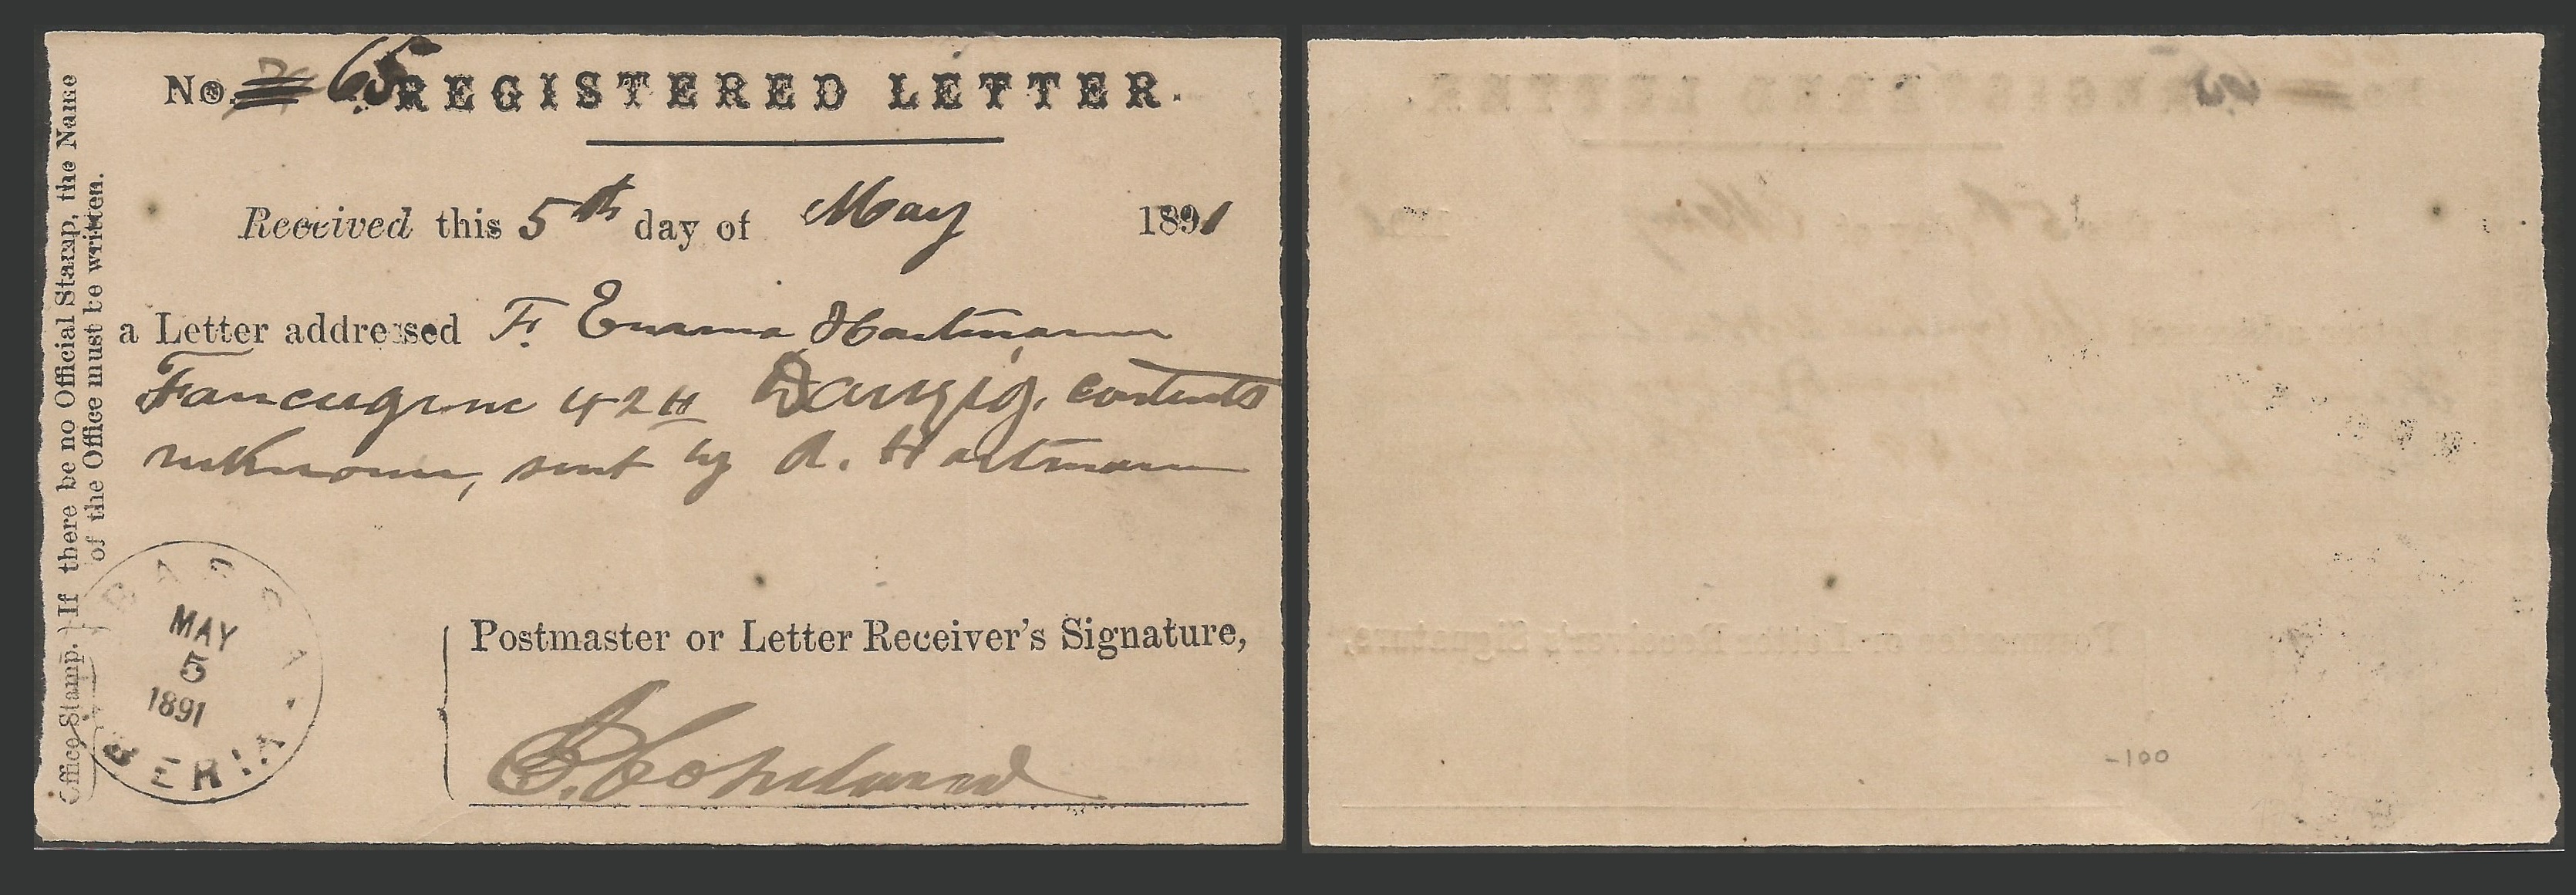 No. 65 REGISTERED LETTER.
Received this 5th day of May 1891
a Letter addressed F. Emma Hartmann
42 H Danzig, contents
unknown, sent by A. Hartmann
Postmaster or Letter Receiver's Signature,
Copeland
Office Stamp. If there be no Official Stamp, the Name
of the Office must be written.
BASSA
MAY
5
1891
BERIA
-100